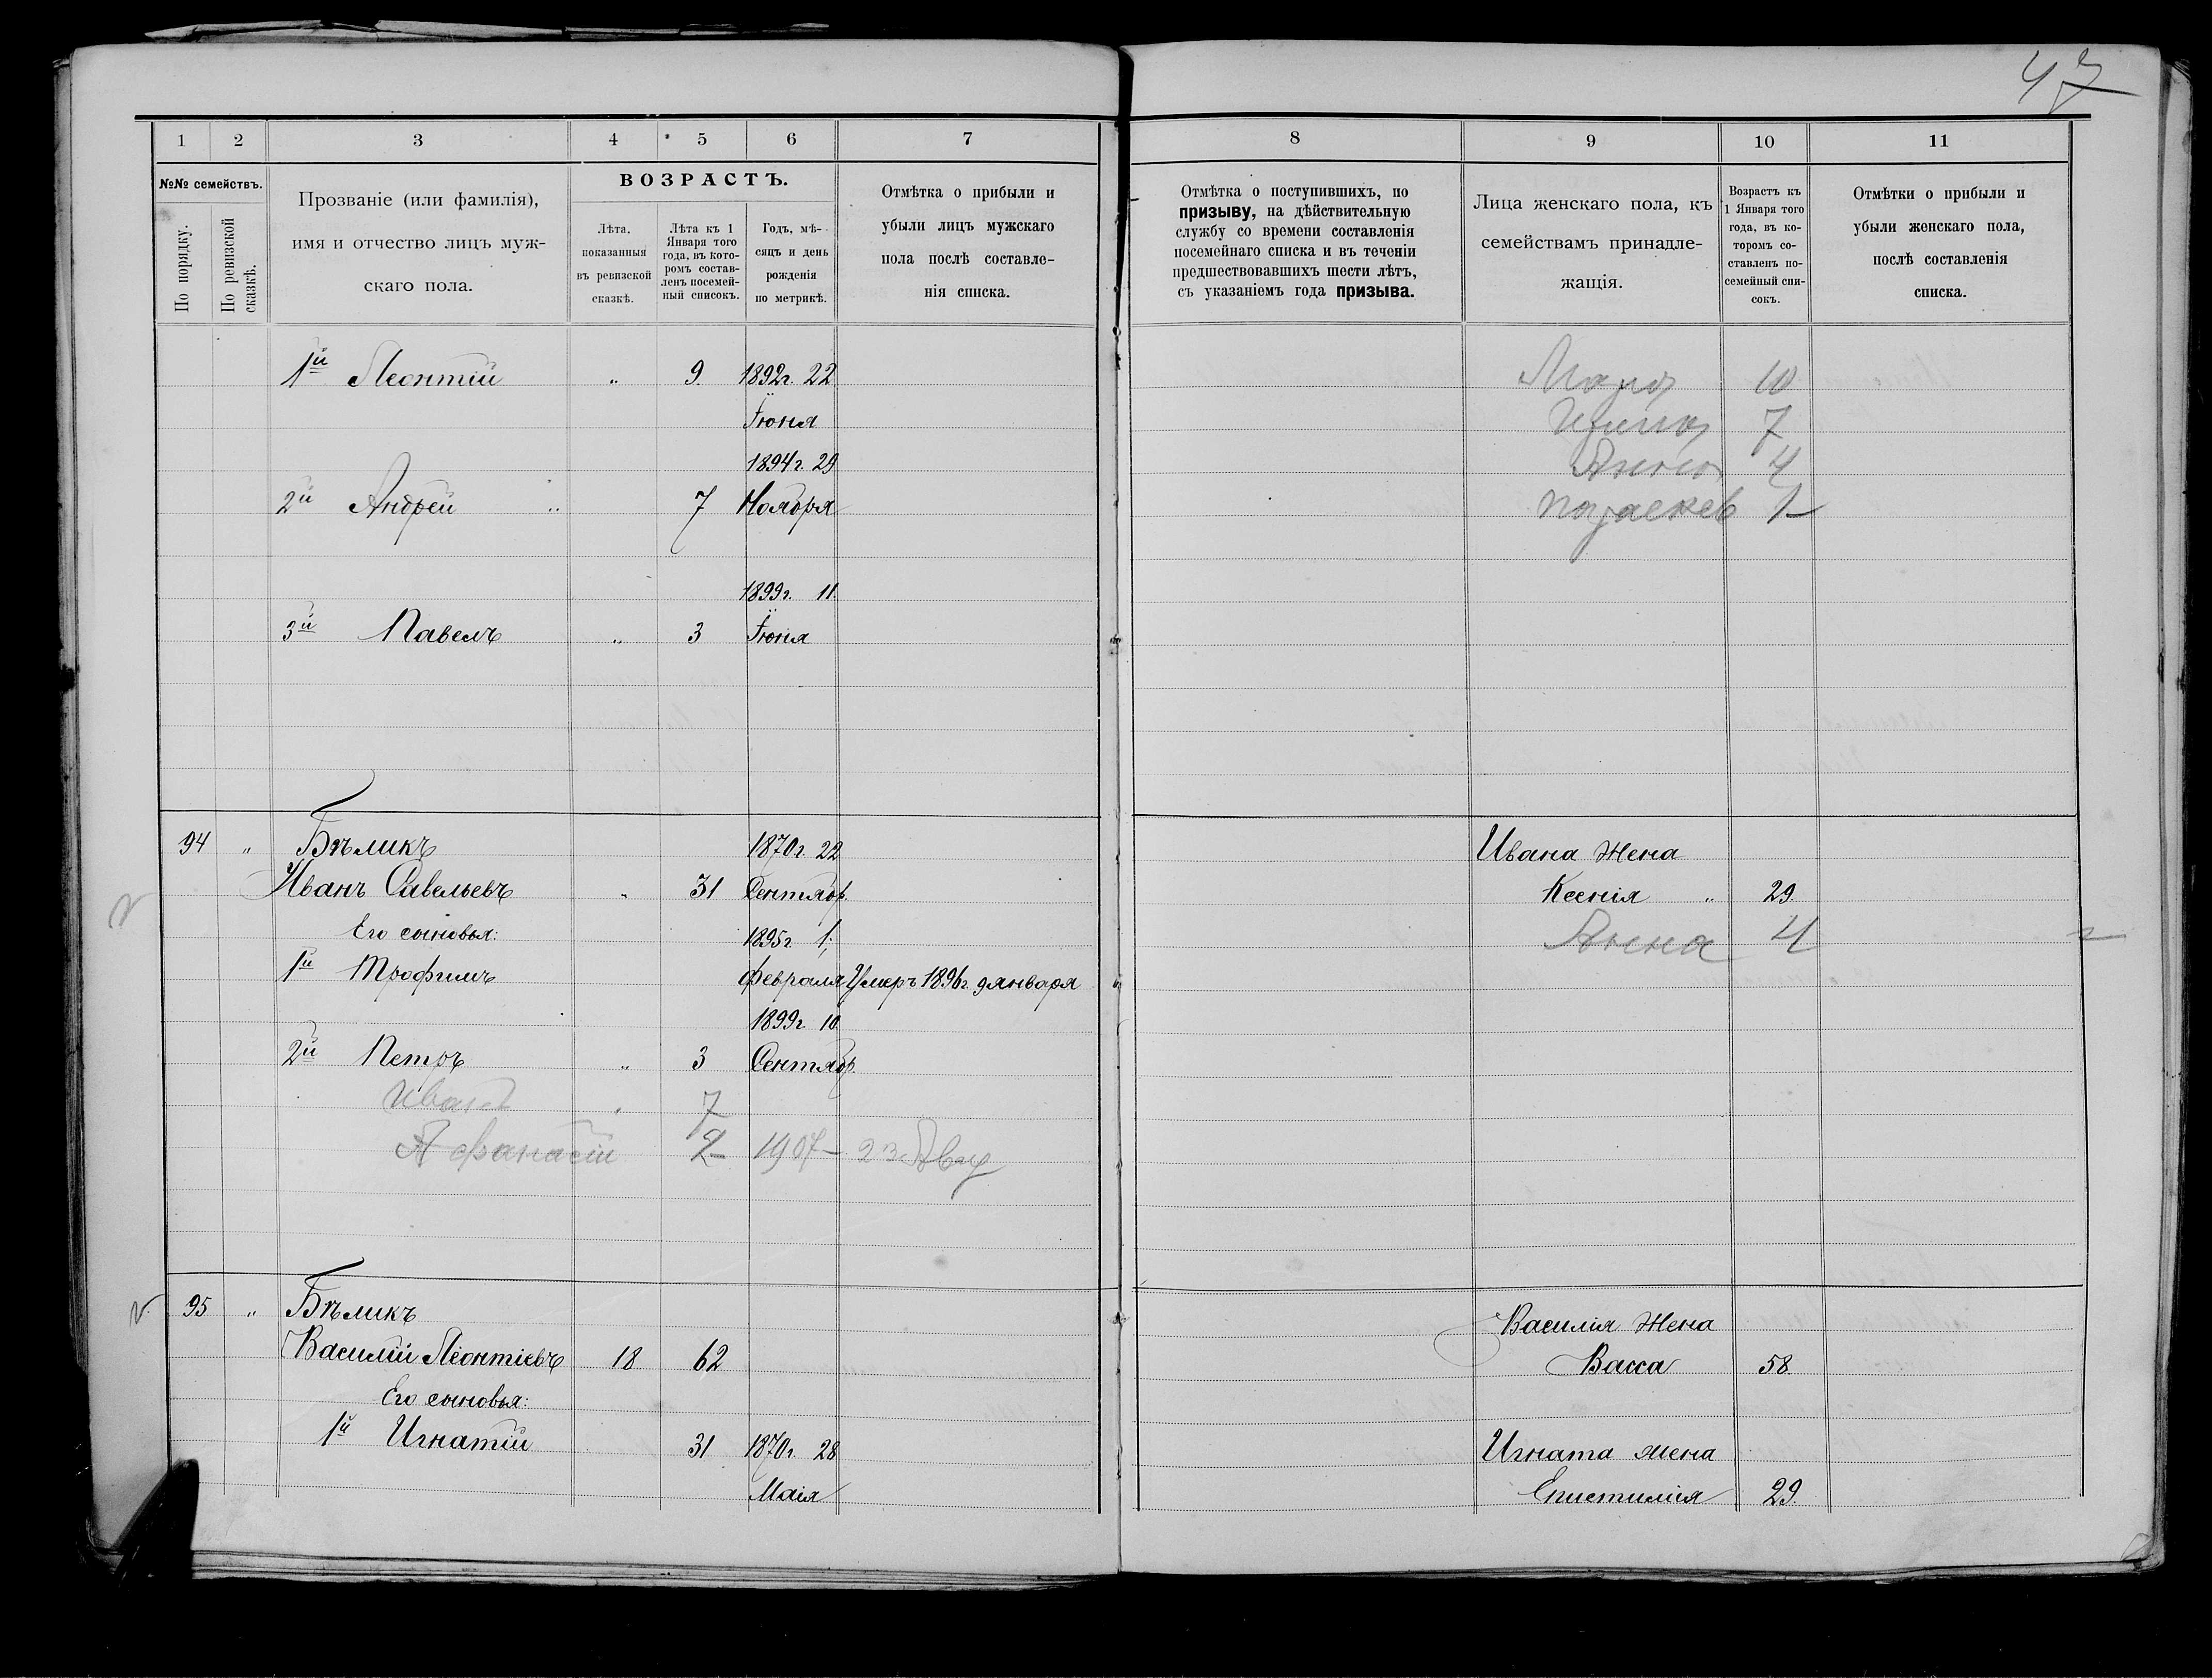 47
1 2 3 4 5 6 7
№№ семействъ.
По порядку.
По ревизской сказкѣ.
Прозваніе (или фамилія),
имя и отчество лицъ муж-
скаго пола.
ВОЗРАСТЪ.
Лѣта,
показанныя
въ ревизской
сказкѣ.
Лѣта къ 1
Января того
года, въ кото-
ромъ состав-
ленъ посемей-
ный списокъ.
Годъ, мѣ-
сяцъ и день
рожденія
по метрикѣ.
Отмѣтка о прибыли и
убыли лицъ мужскаго
пола послѣ составле-
нія списка.
1й Леонтій " 9. 1892г. 22
Іюня
1894г. 29
2й Андрей " 7 Ноября
1899г. 11.
3й Павелъ " 3 Іюня
94 " Бѣликъ 1870г. 22
Иванъ Савельевъ " 31 Сентябр.
Его сыновья: 1895г. 1,
1й Трофимъ Февраля Умеръ 1896г. 9 января
1899г. 10
2й Петръ " 3 Сентябр.
Иванъ " 7
Афанасій 2 1907 – 23 Авг
95 " Бѣликъ
Василій Леонтіевъ 18 62
Его сыновья:
1й Игнатій 31 1870г. 28
Маія
8 9 10 11
Отмѣтка о поступившихъ, по
призыву, на дѣйствительную
службу со времени составленія
посемейнаго списка и въ теченіи
предшествовавшихъ шести лѣтъ,
съ указаніемъ года призыва.
Лица женскаго пола, къ
семействамъ принадле-
жащія.
Возрастъ къ
1 Января того
года, въ ко-
торомъ со-
ставленъ по-
семейный спи-
сокъ.
Отмѣтки о прибыли и
убыли женскаго пола,
послѣ составленія
списка.
10
7
Анна 4
1
Ивана Жена
Ксенія " 29.
Анна 4
Василія Жена
Васса 58.
Игната жена
Епистимія 29.